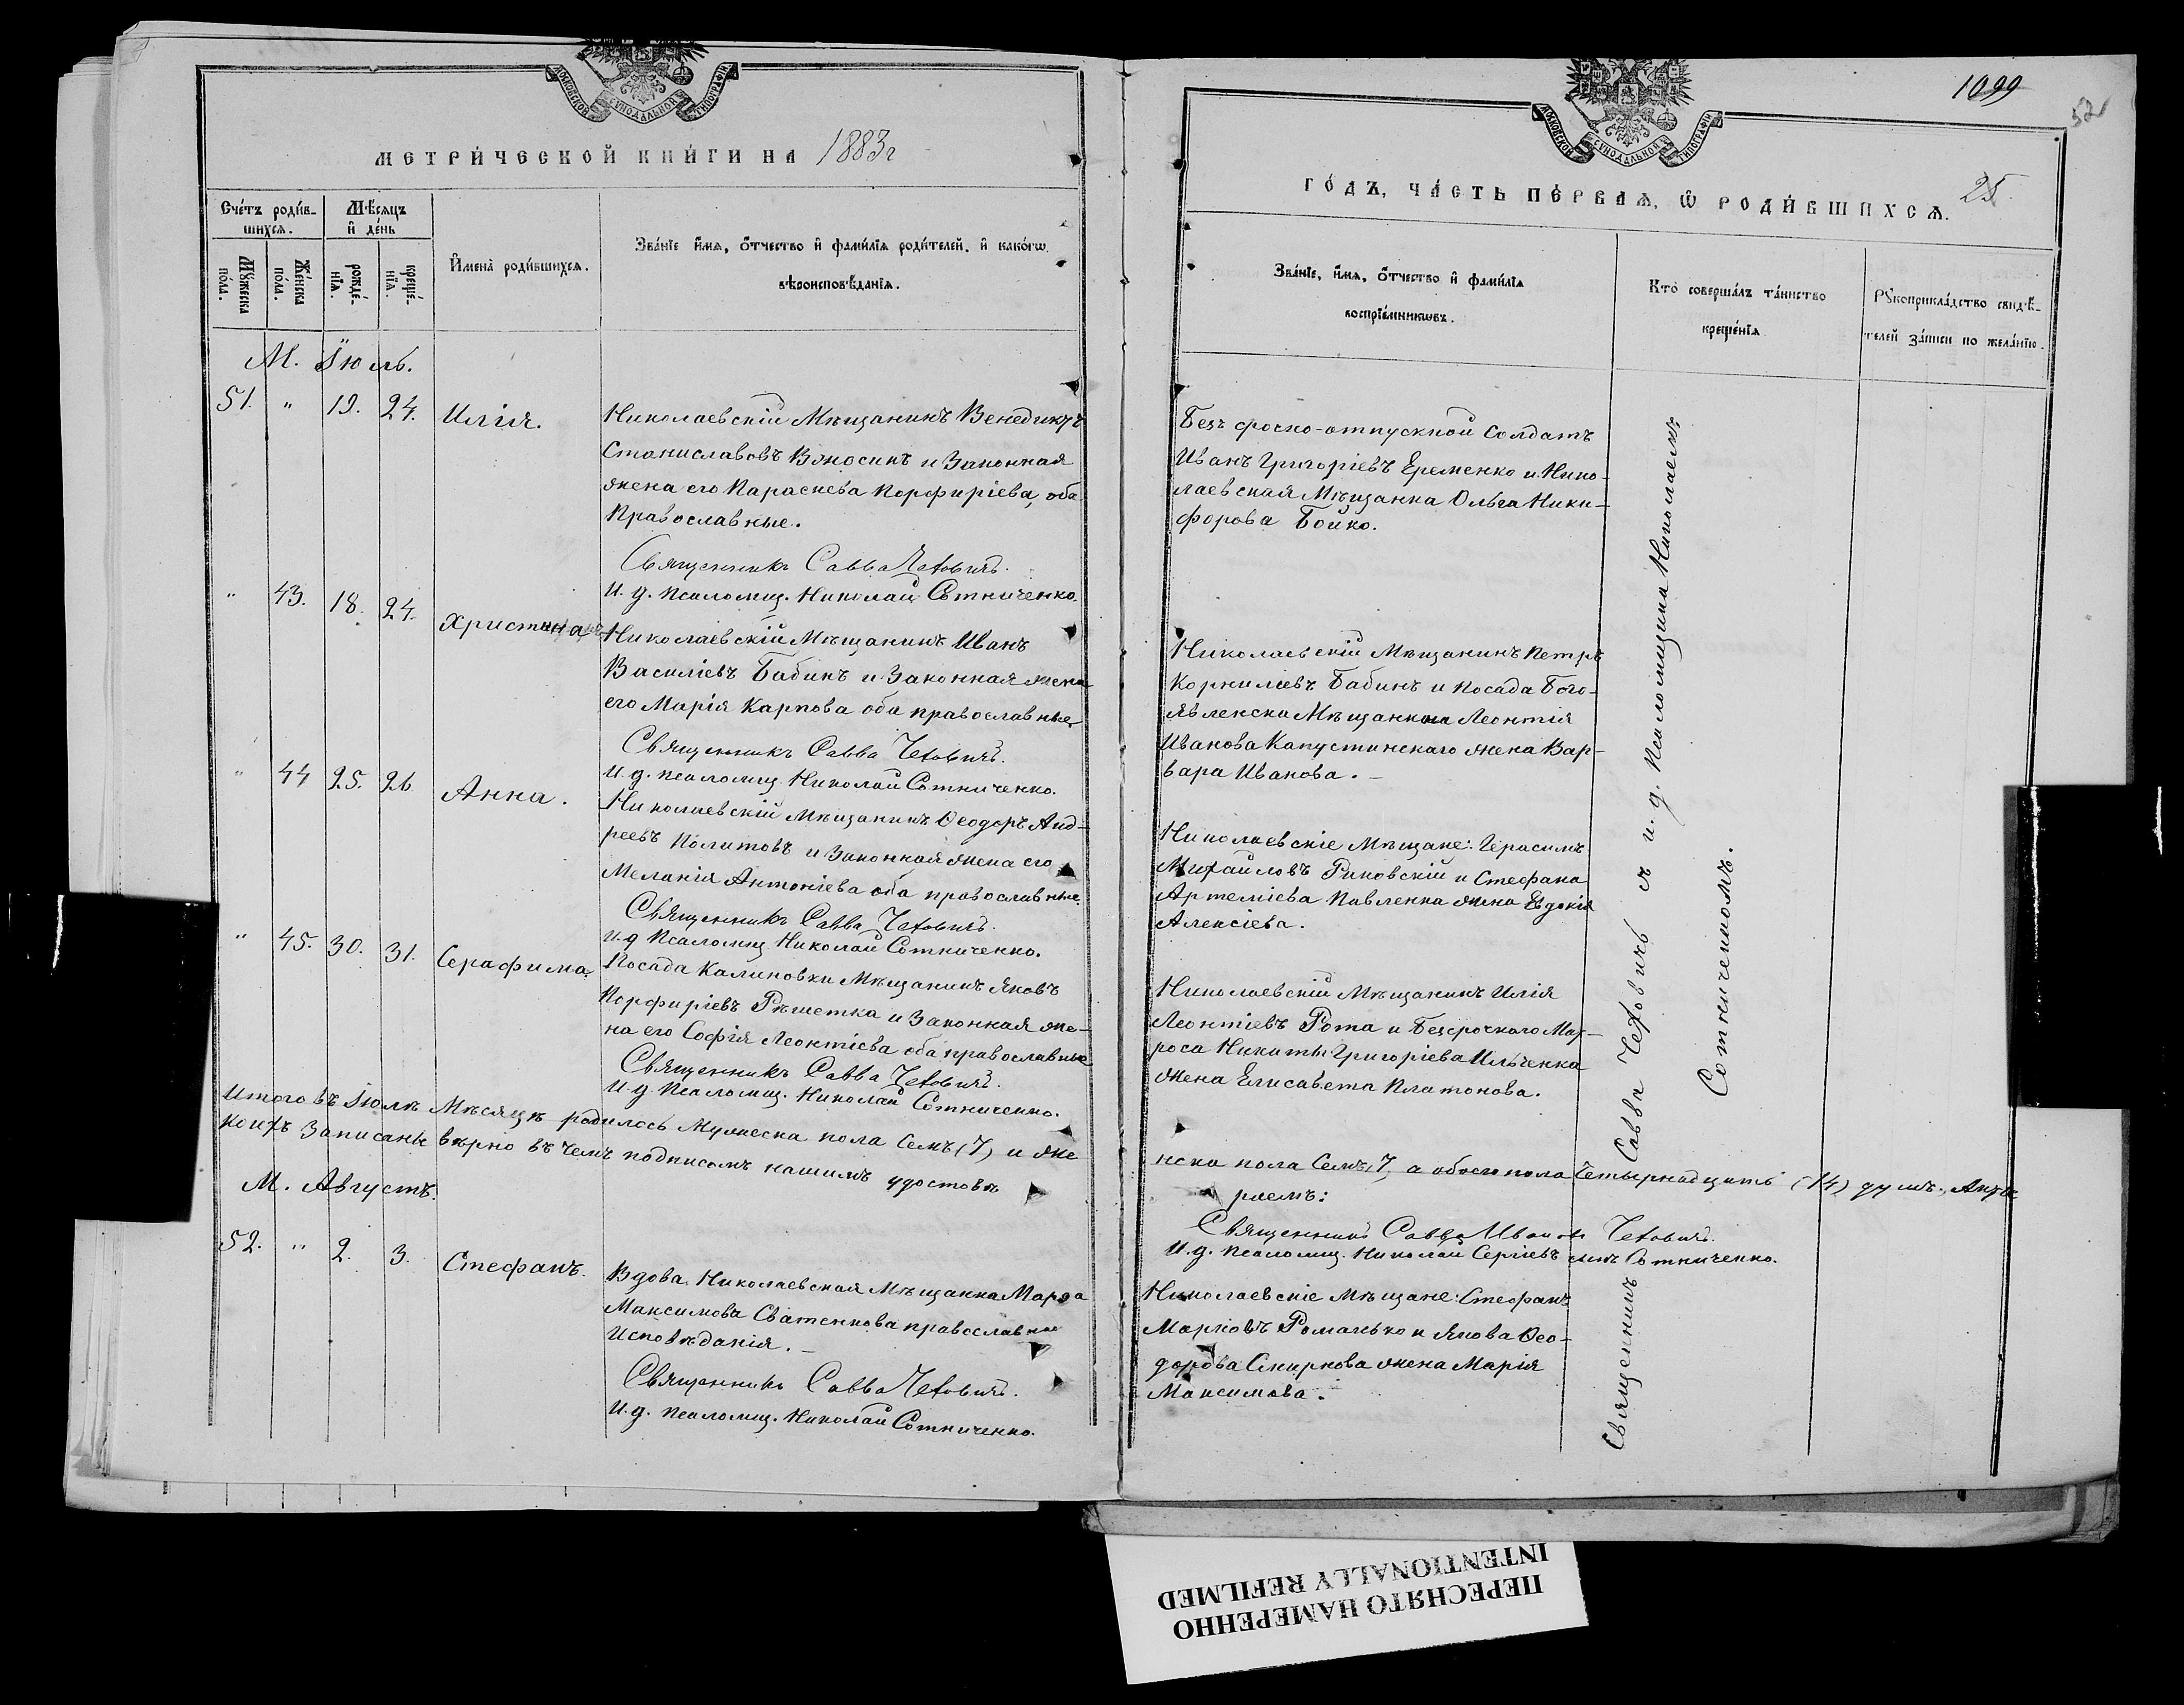 МОСКОВСКОЙ СУНОДАЛЬНОЙ ТИПОГРАФІИ
МЕТРИ́ЧЕСКОЙ КНИ́ГИ НА 1883 г
Сче́тъ роди́в-
шихся.
Мѣ́сяцъ
и҆ де́нь
Мꙋ́жеска
по́ла.
Же́нска
по́ла.
рожде́-
нїѧ.
креще́-
нїѧ.
И҆мена̀ роди́вшихся.
Зва́нїе и҆́мѧ, ѻ҆́тчество и҆ фами́лїѧ роди́телей, и҆ како́гѡ
вѣроисповѣ́данїѧ.
М. Іюль.
51. " 19. 24. Илія.
Николаевскій Мѣщанинъ Венедиктъ
Станиславовъ Вжосинъ и Законная
жена его Параскева Порфиріева, оба
Православные.
Священникъ Савва Чеховичъ.
И. д. Псаломщ. Николай Сотниченко.
" 43. 18. 24. Христина
Николаевскій Мѣщанинъ Иванъ
Василіевъ Бабинъ и Законная жена
его Марія Карпова оба православные
Священникъ Савва Чеховичъ.
И. д. псаломщ. Николай Сотниченко.
" 44 25. 26 Анна.
Николаевскій Мѣщанинъ Ѳеодоръ Анд-
реевъ Политовъ и Законная жена его
Меланія Антоніева оба православные.
Священникъ Савва Чеховичъ.
И. д Псаломщ Николай Сотниченко.
" 45. 30. 31. Серафима.
Посада Калиновки Мѣщанинъ Яковъ
Порфиріевъ Рѣшетка и Законная же-
на его Софія Леонтіева оба православные
Священникъ Савва Чеховичъ.
И. д. Псаломщ. Николай Сотниченко.
Итого въ Іюлѣ Мѣсяцѣ родилось Мужеска пола Семь (7) и же
коихъ Записаны вѣрно въ чемъ подписомъ нашимъ удостовѣ
М. Августъ.
52. " 2. 3. Стефанъ.
Вдова Николаевская Мѣщанка Марѳа
Максимова Сватенкова православнаго
Исповѣданія. —
Священникъ Савва Чеховичъ.
И. д. псаломщ. Николай Сотниченко.
1099
52
МОСКОВСКОЙ СУНОДАЛЬНОЙ ТИПОГРАФІИ
ГО́ДЪ, ЧА́СТЬ ПЕ́РВАѦ, Ѡ҆ РОДИ́ВШИХСѦ. 25.
Зва́нїе, и҆́мѧ, ѻ҆́тчество и҆ фами́лїѧ
воспрїе́мникѡвъ.
Кто̀ соверша́лъ та́инство
креще́нїѧ
Рꙋкоприкла́дство свидѣ́-
телей за́писи по жела́нїю.
Безъ срочно-отпускной Солдатъ
Иванъ Григоріевъ Еременко и Нико-
лаевская Мѣщанка Ольга Ники-
форова Бойко.
Николаевскій Мѣщанинъ Петръ
Корниліевъ Бабинъ и посада Бого-
явленска Мѣщанина Леонтія
Иванова Капустинскаго жена Вар-
вара Иванова. —
Николаевскіе Мѣщане: Герасимъ
Михайловъ Риковскій и Стефана
Артеміева Павленка жена Евдокія
Алексіева.
Николаевскій Мѣщанинъ Илія
Леонтіевъ Рота и Безсрочнаго Мат-
роса Никиты Григоріева Ильченка
Жена Елисавета Платонова.
нска пола Семь 7, а обоего пола Четырнадцать (14) душъ.
ряемъ:
Священникъ Савва Чеховичъ.
И. д. псаломщ. Николай Сергіевъ Сотниченко.
Николаевскіе мѣщане: Стефанъ
Марковъ Романько и Якова Ѳео-
дорова Смирнова жена Марія
Максимова.
Священникъ Савва Чеховичъ съ и. д. Псаломщика Николаемъ
Сотниченкомъ.
ПЕРЕСНЯТО НАМЕРЕННО
INTENTIONALLY REFILMED